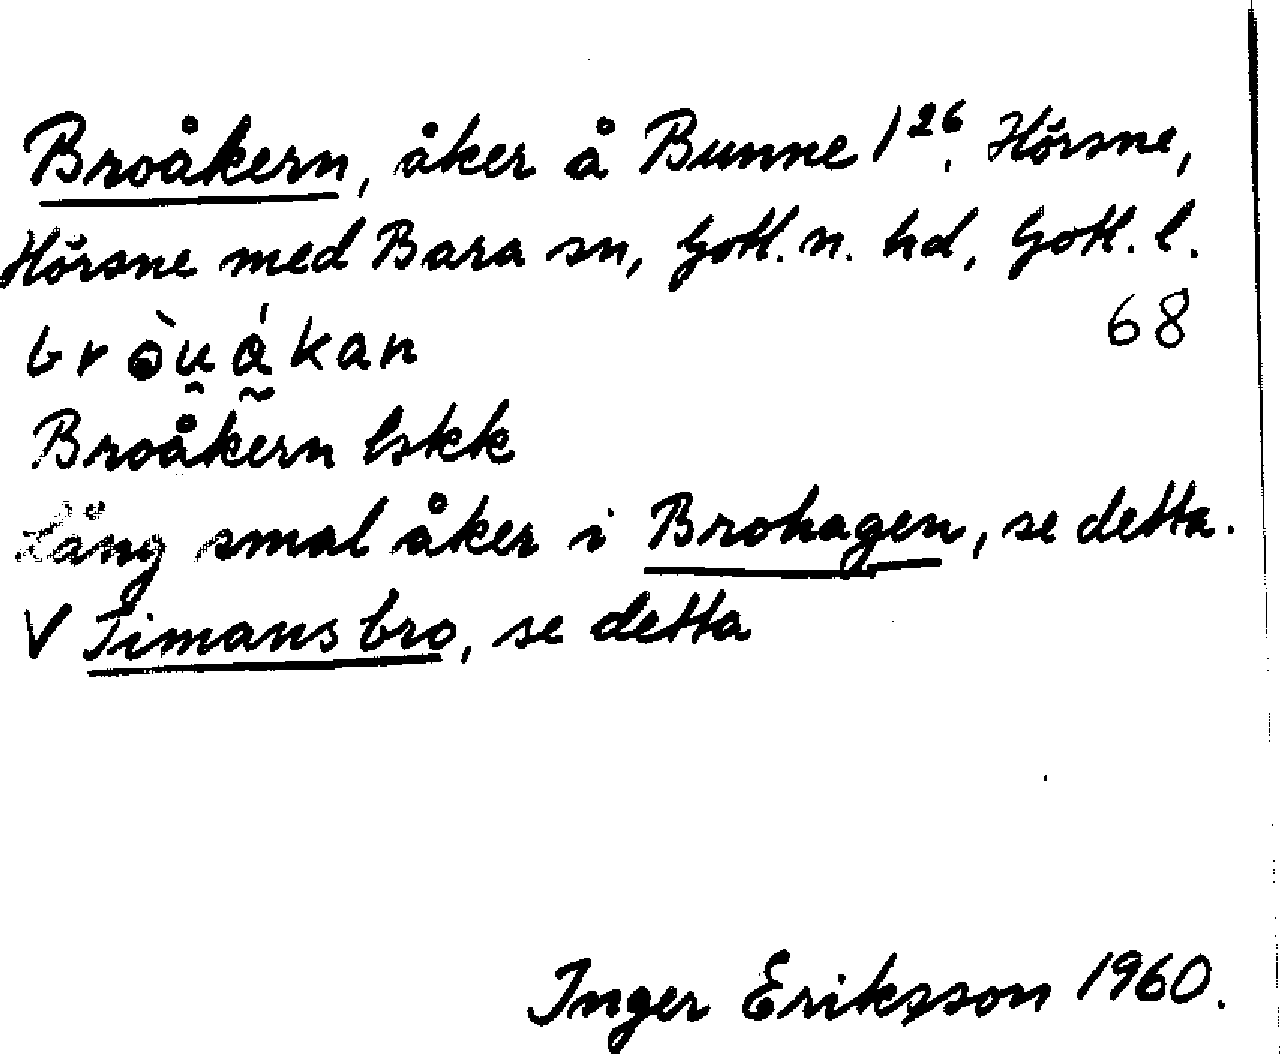 Broåkern, åker å Bunne 1²⁶. Hörsne,
Hörsne med Bara sn, Gotl. n. hd, Gotl. l.
68
bròu̯ákan
Broåkern Eskk
Lång smal åker i Brohagen, se detta.
V Timans bro, se detta
Inger Eriksson 1960.